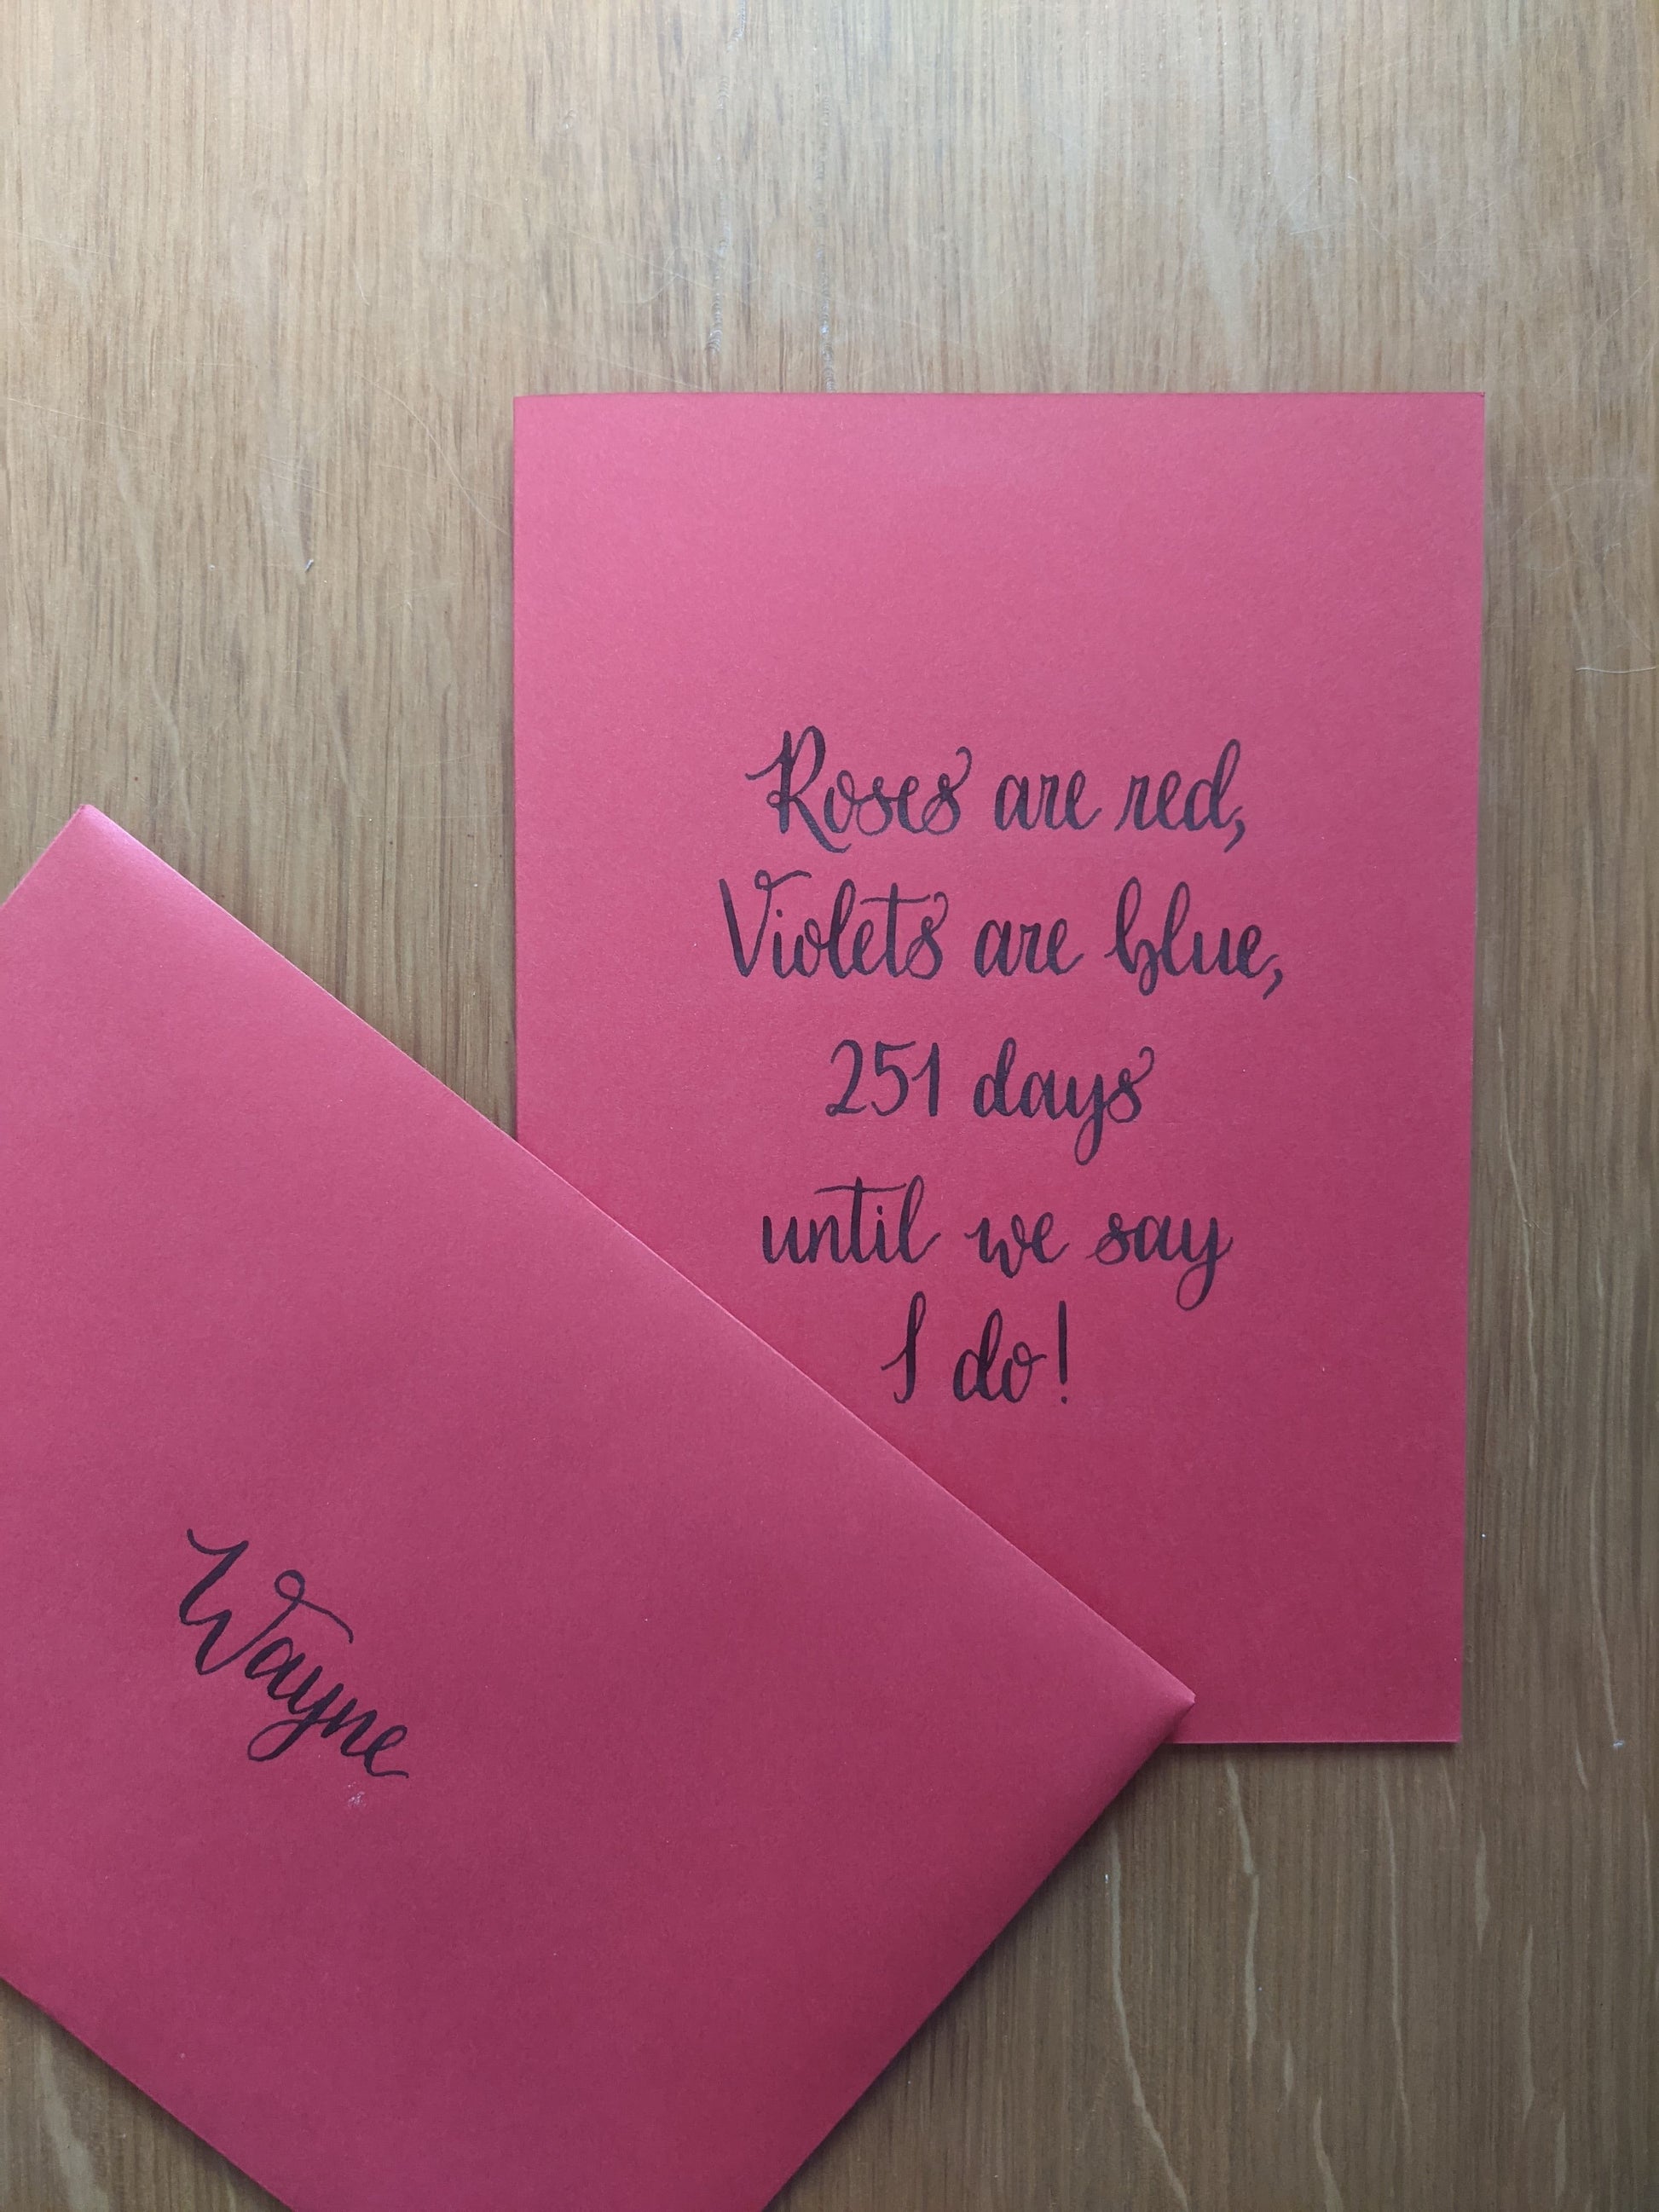 Roses are red,
Violets are blue,
251 days
until we say
I do!
Wayne